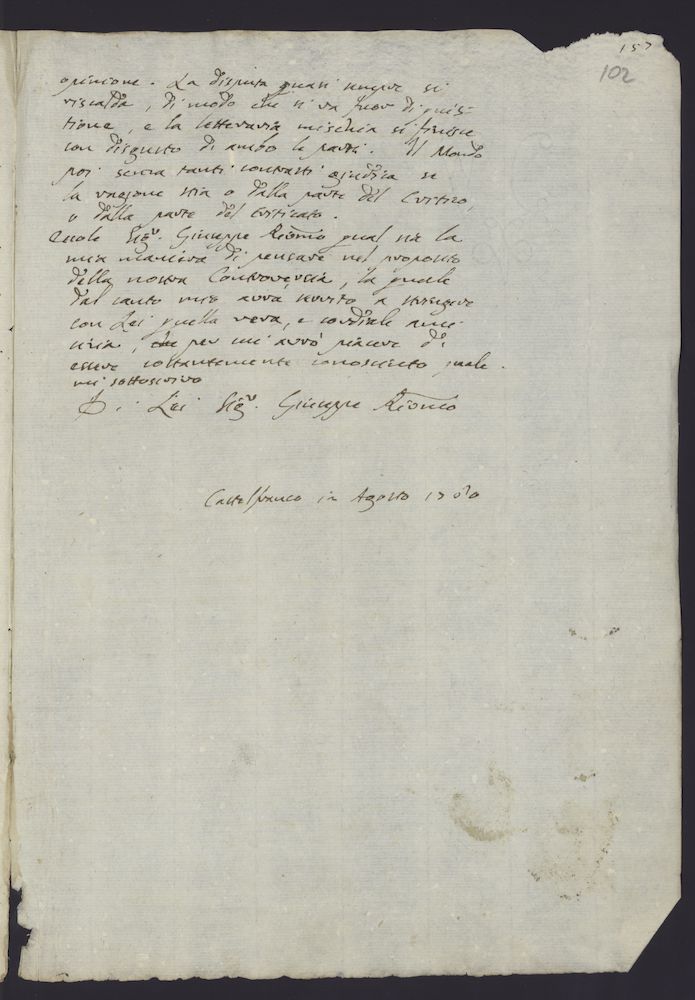 157
102
opinione. La disputa quasi sempre si
riscalda, di modo che si va fuor di quis-
tione, e la letteraria mischia si finisce
con disgusto di ambo le parti. Il Mondo
poi senza tanti contrasti giudica se
la ragione stia o dalla parte del Critico,
o dalla parte del Criticato.
Eccole Sigr. Giuseppe Riccardo qual sia la
mia maniera di pensare nel proposito
della nostra Controversia, la quale
dal canto mio avrà servito a stringere
con Lei quella vera, e cordiale ami-
cizia, che per cui avrò piacere di
essere costantemente conosciuto quale
mi sottoscrivo
Di Lei Sigr. Giuseppe
Castelfranco in Agosto 1780